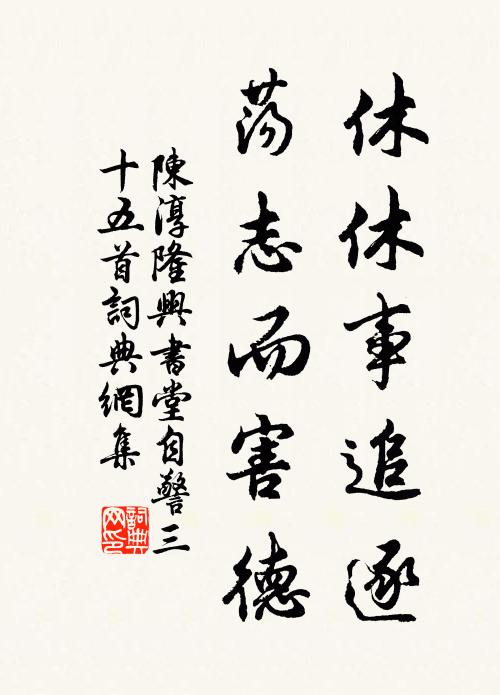 休休事追逐
蕩志而害德
陳淳隆興書堂自警三
十五首詞典網集
詞典
网印